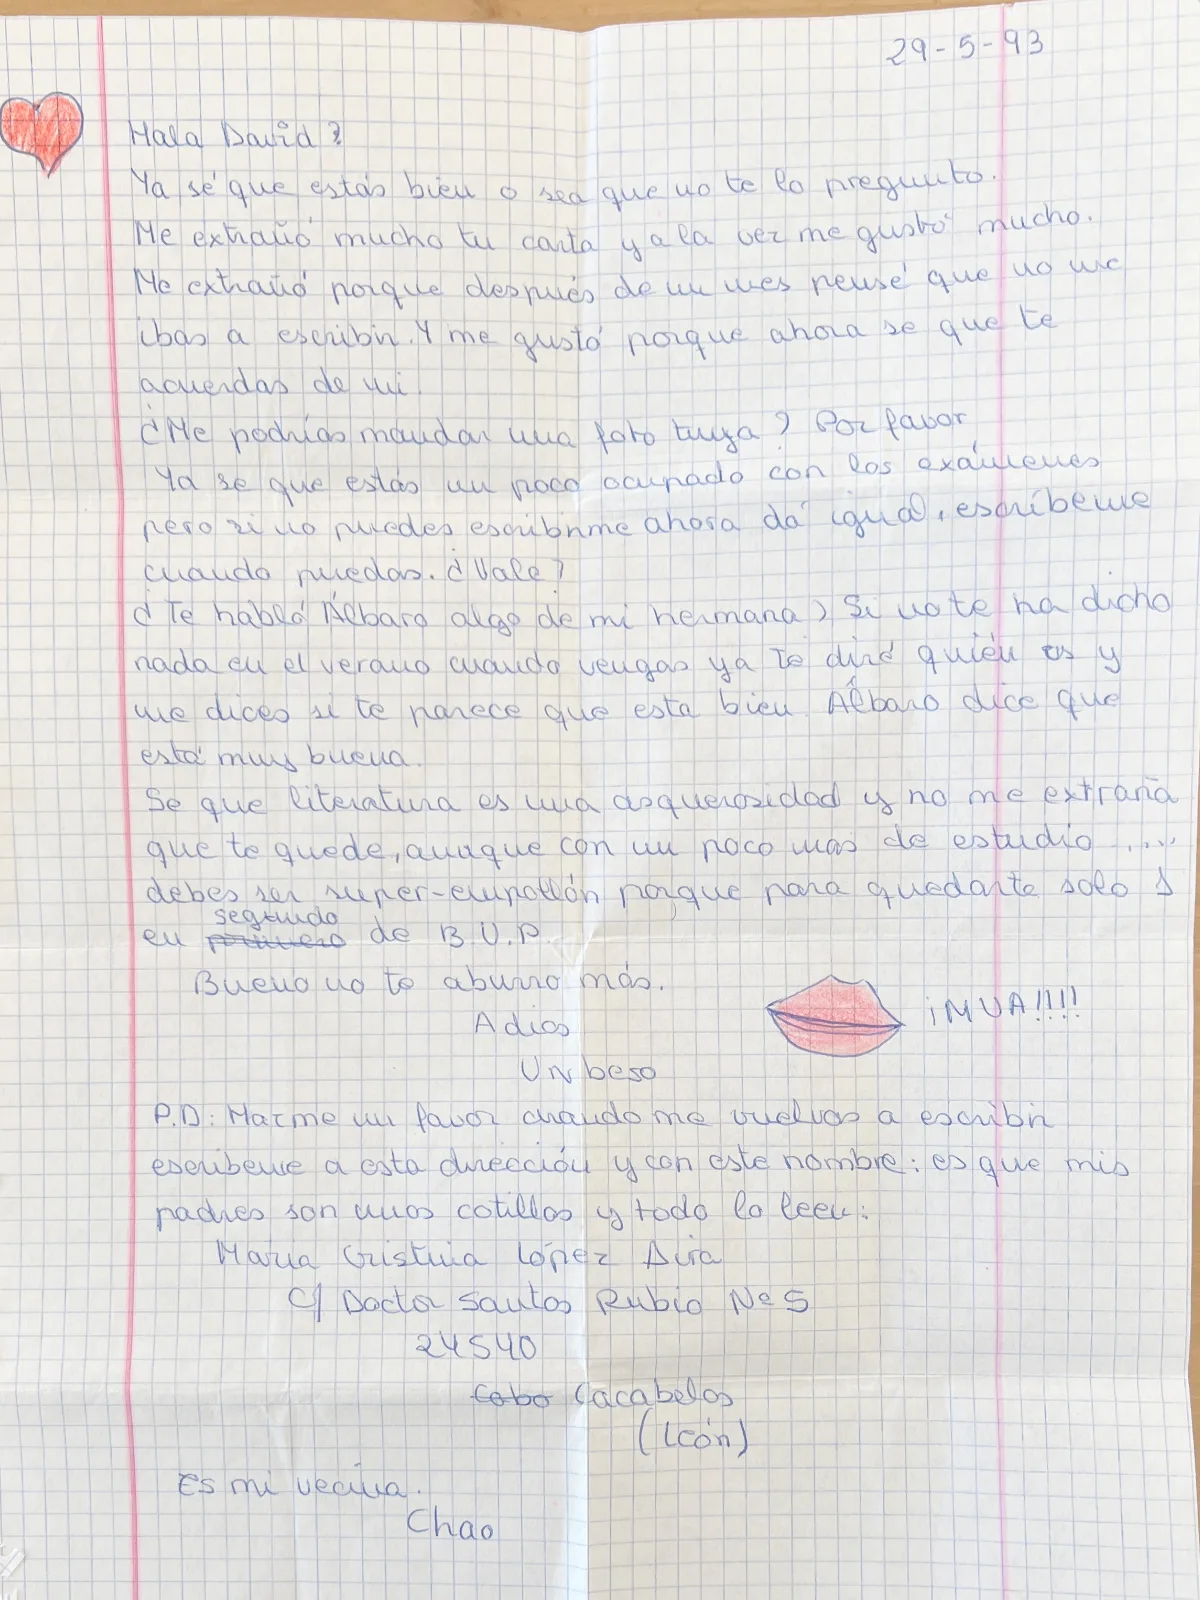 29-5-93
Hala David?
Ya sé que estás bien o sea que no te lo pregunto.
Me extrañó mucho tu carta y a la vez me gustó mucho.
Me extrañó porque después de un mes pensé que no me
ibas a escribir. Y me gustó porque ahora se que te
acuerdas de mi.
¿Me podrías mandar una foto tuya? Por favor
Ya se que estás un poco ocupado con los exámenes
pero si no puedes escribirme ahora dá igual, escríbeme
cuando puedas. ¿Vale?
¿Te habló Álbaro algo de mi hermana? Si no te ha dicho
nada en el verano cuando vengas ya te diré quién es y
me dices si te parece que esta bien. Álbaro dice que
está muy buena.
Se que literatura es una asquerosidad y no me extraña
que te quede, aunque con un poco mas de estudio .....
debes ser super-empollón porque para quedarte solo 1
en primero segundo de B.U.P.
Bueno no te aburro más.
Adios
Un beso
¡MUA!!!!
P.D: Hazme un favor cuando me vuelvas a escribir
escribeme a esta dirección y con este nombre: es que mis
padres son unos cotillas y todo lo leen:
Maria Cristina López Aira
C/ Doctor Santos Rubio Nº 5
24540
Cobo Cacabelos
(León)
Es mi vecina.
Chao